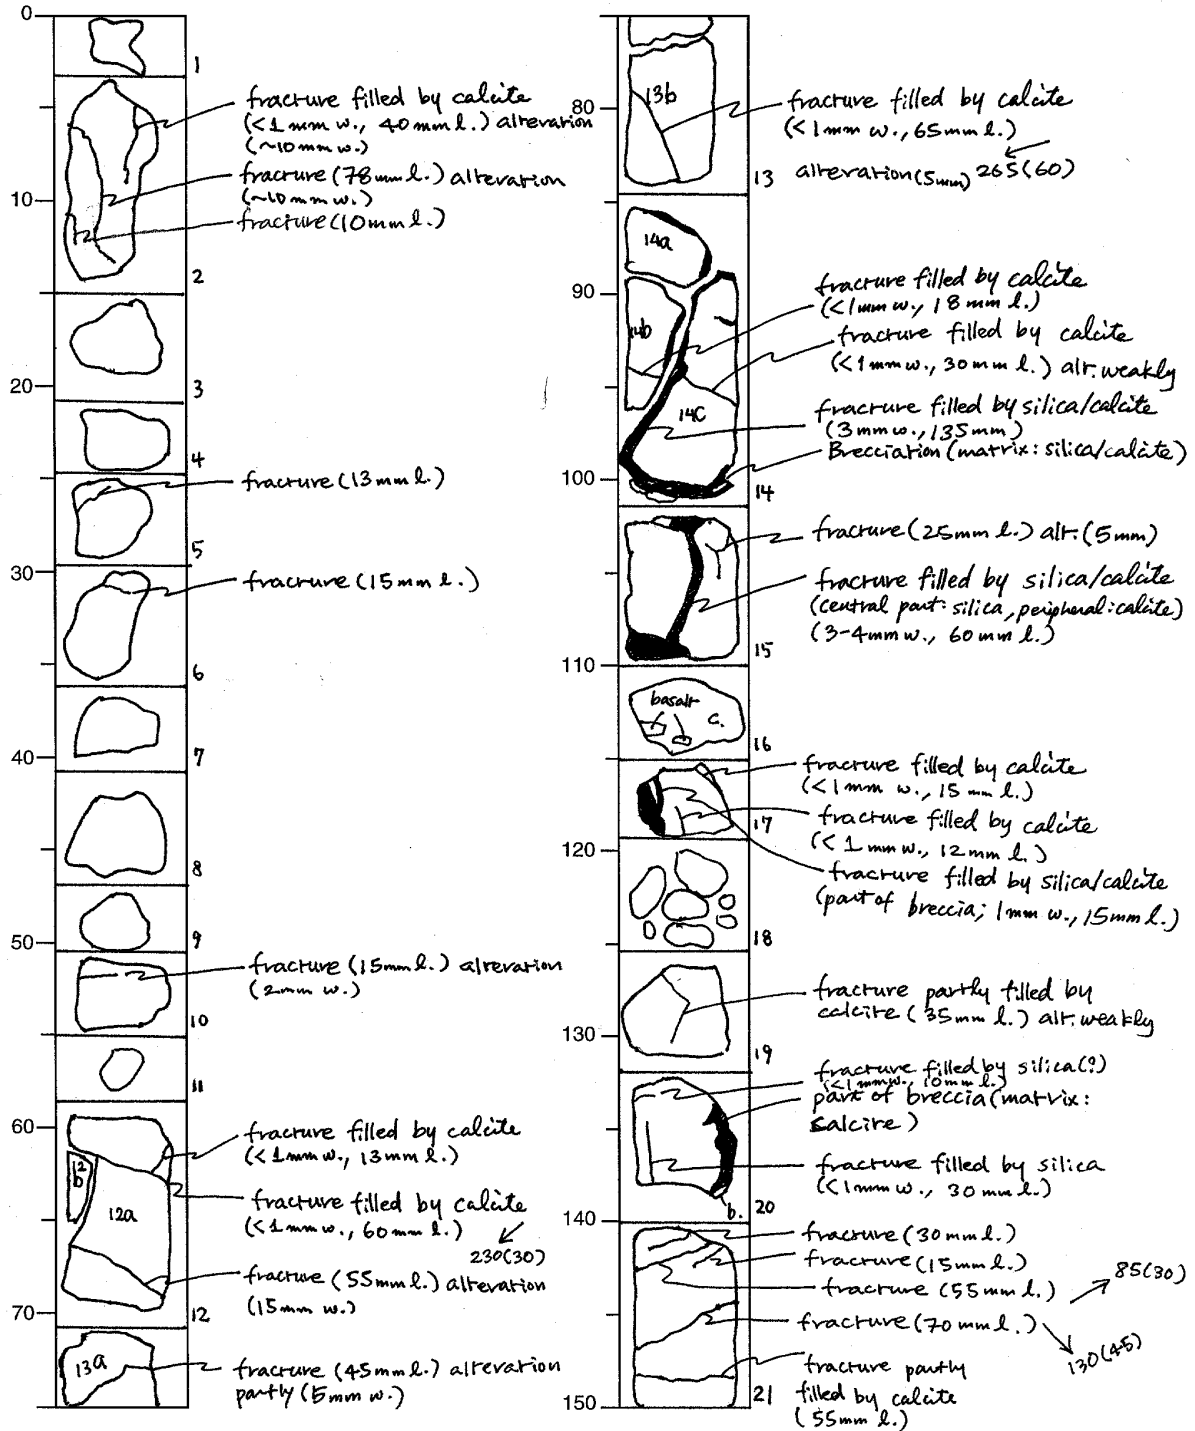 0
1
fracture filled by calcite
(<1mm w., 40mm l.) alteration
(~10mm w.)
fracture (78mm l.) alteration
(~10mm w.)
10
fracture (10mm l.)
2
3
20
4
fracture (13mm l.)
5
30
fracture (15mm l.)
6
7
40
8
9
50
fracture (15mm l.) alteration
(2mm w.)
10
11
60
fracture filled by calcite
(<1mm w., 13mm l.)
12b
12a
fracture filled by calcite
(<1mm w., 60mm l.)
230(30)
fracture (55mm l.) alteration
(15mm w.)
70
12
13a
fracture (45mm l.) alteration
partly (5mm w.)
13b
80
fracture filled by calcite
(<1mm w., 65mm l.)
13
alteration (5mm) 265(60)
14a
90
fracture filled by calcite
(<1mm w., 18mm l.)
14b
fracture filled by calcite
(<1mm w., 30mm l.) alt. weakly
14c
fracture filled by silica/calcite
(3mm w., 135mm)
Brecciation (matrix: silica/calcite)
100
14
fracture (25mm l.) alt. (5mm)
fracture filled by silica/calcite
(central part: silica, peripheral: calcite)
(3-4mm w., 60mm l.)
15
110
basalt
c.
16
fracture filled by calcite
(<1mm w., 15mm l.)
17
fracture filled by calcite
(<1mm w., 12mm l.)
120
fracture filled by silica/calcite
(part of breccia; 1mm w., 15mm l.)
18
fracture partly filled by
calcite (35mm l.) alt. weakly
130
19
fracture filled by silica(?)
(<1mm w., 10mm l.)
part of breccia (matrix:
calcite)
fracture filled by silica
(<1mm w., 30mm l.)
b.
20
140
fracture (30mm l.)
fracture (15mm l.)
fracture (55mm l.)
85(30)
fracture (70mm l.)
130(45)
fracture partly
filled by calcite
(55mm l.)
21
150